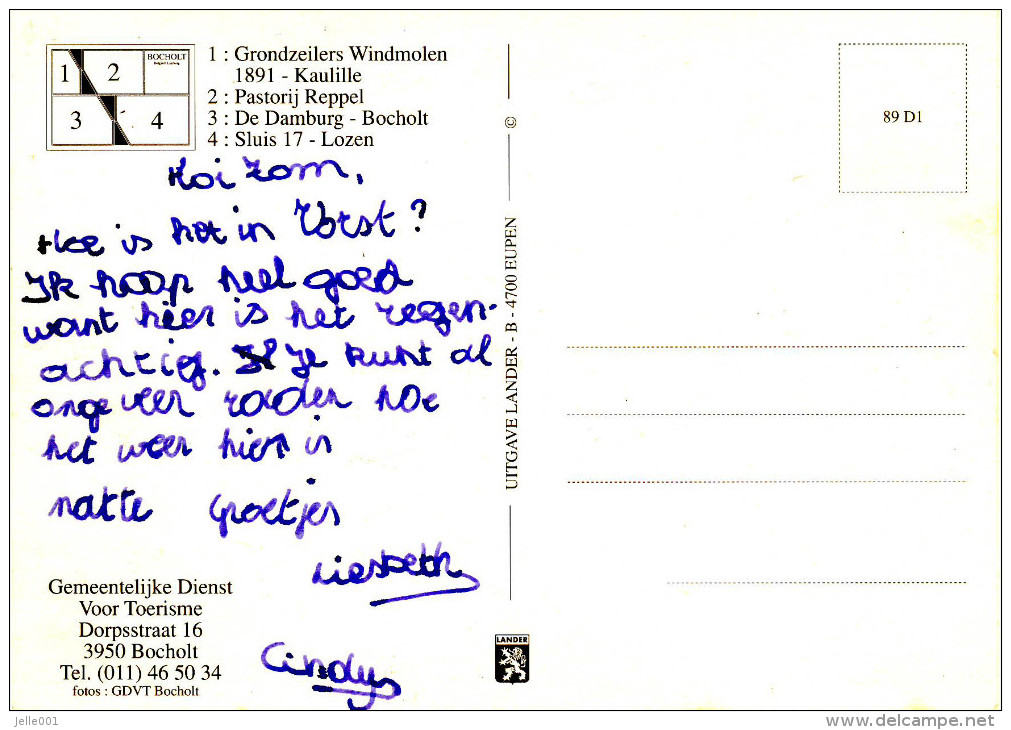 1 2 BOCHOLT
3 4
1 : Grondzeilers Windmolen
1891 - Kaulille
2 : Pastorij Reppel
3 : De Damburg - Bocholt
4 : Sluis 17 - Lozen
Hoi Zom,
Hoe is het in Vorst?
Ik hoop heel goed
want hier is het regen-
achtig. Je kunt al
ongeveer raden hoe
het weer hier is
natte Groetjes
Liesbeth
Cindy
Gemeentelijke Dienst
Voor Toerisme
Dorpsstraat 16
3950 Bocholt
Tel. (011) 46 50 34
fotos : GDVT Bocholt
UITGAVE LANDER - B - 4700 EUPEN ©
LANDER
89 D1
jelle001
delcampe.net